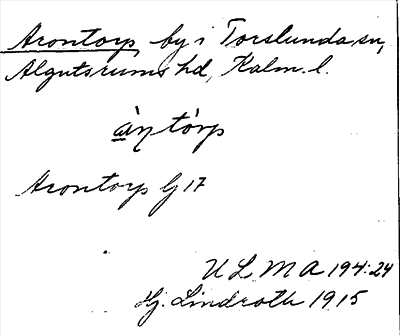 Arontorp, by i Torslunda sn,
Algutsrums hd, Kalm. l.
àη tòrp
Arontorp Gj 17
U L M A 194:24
Hj. Lindroth 1915